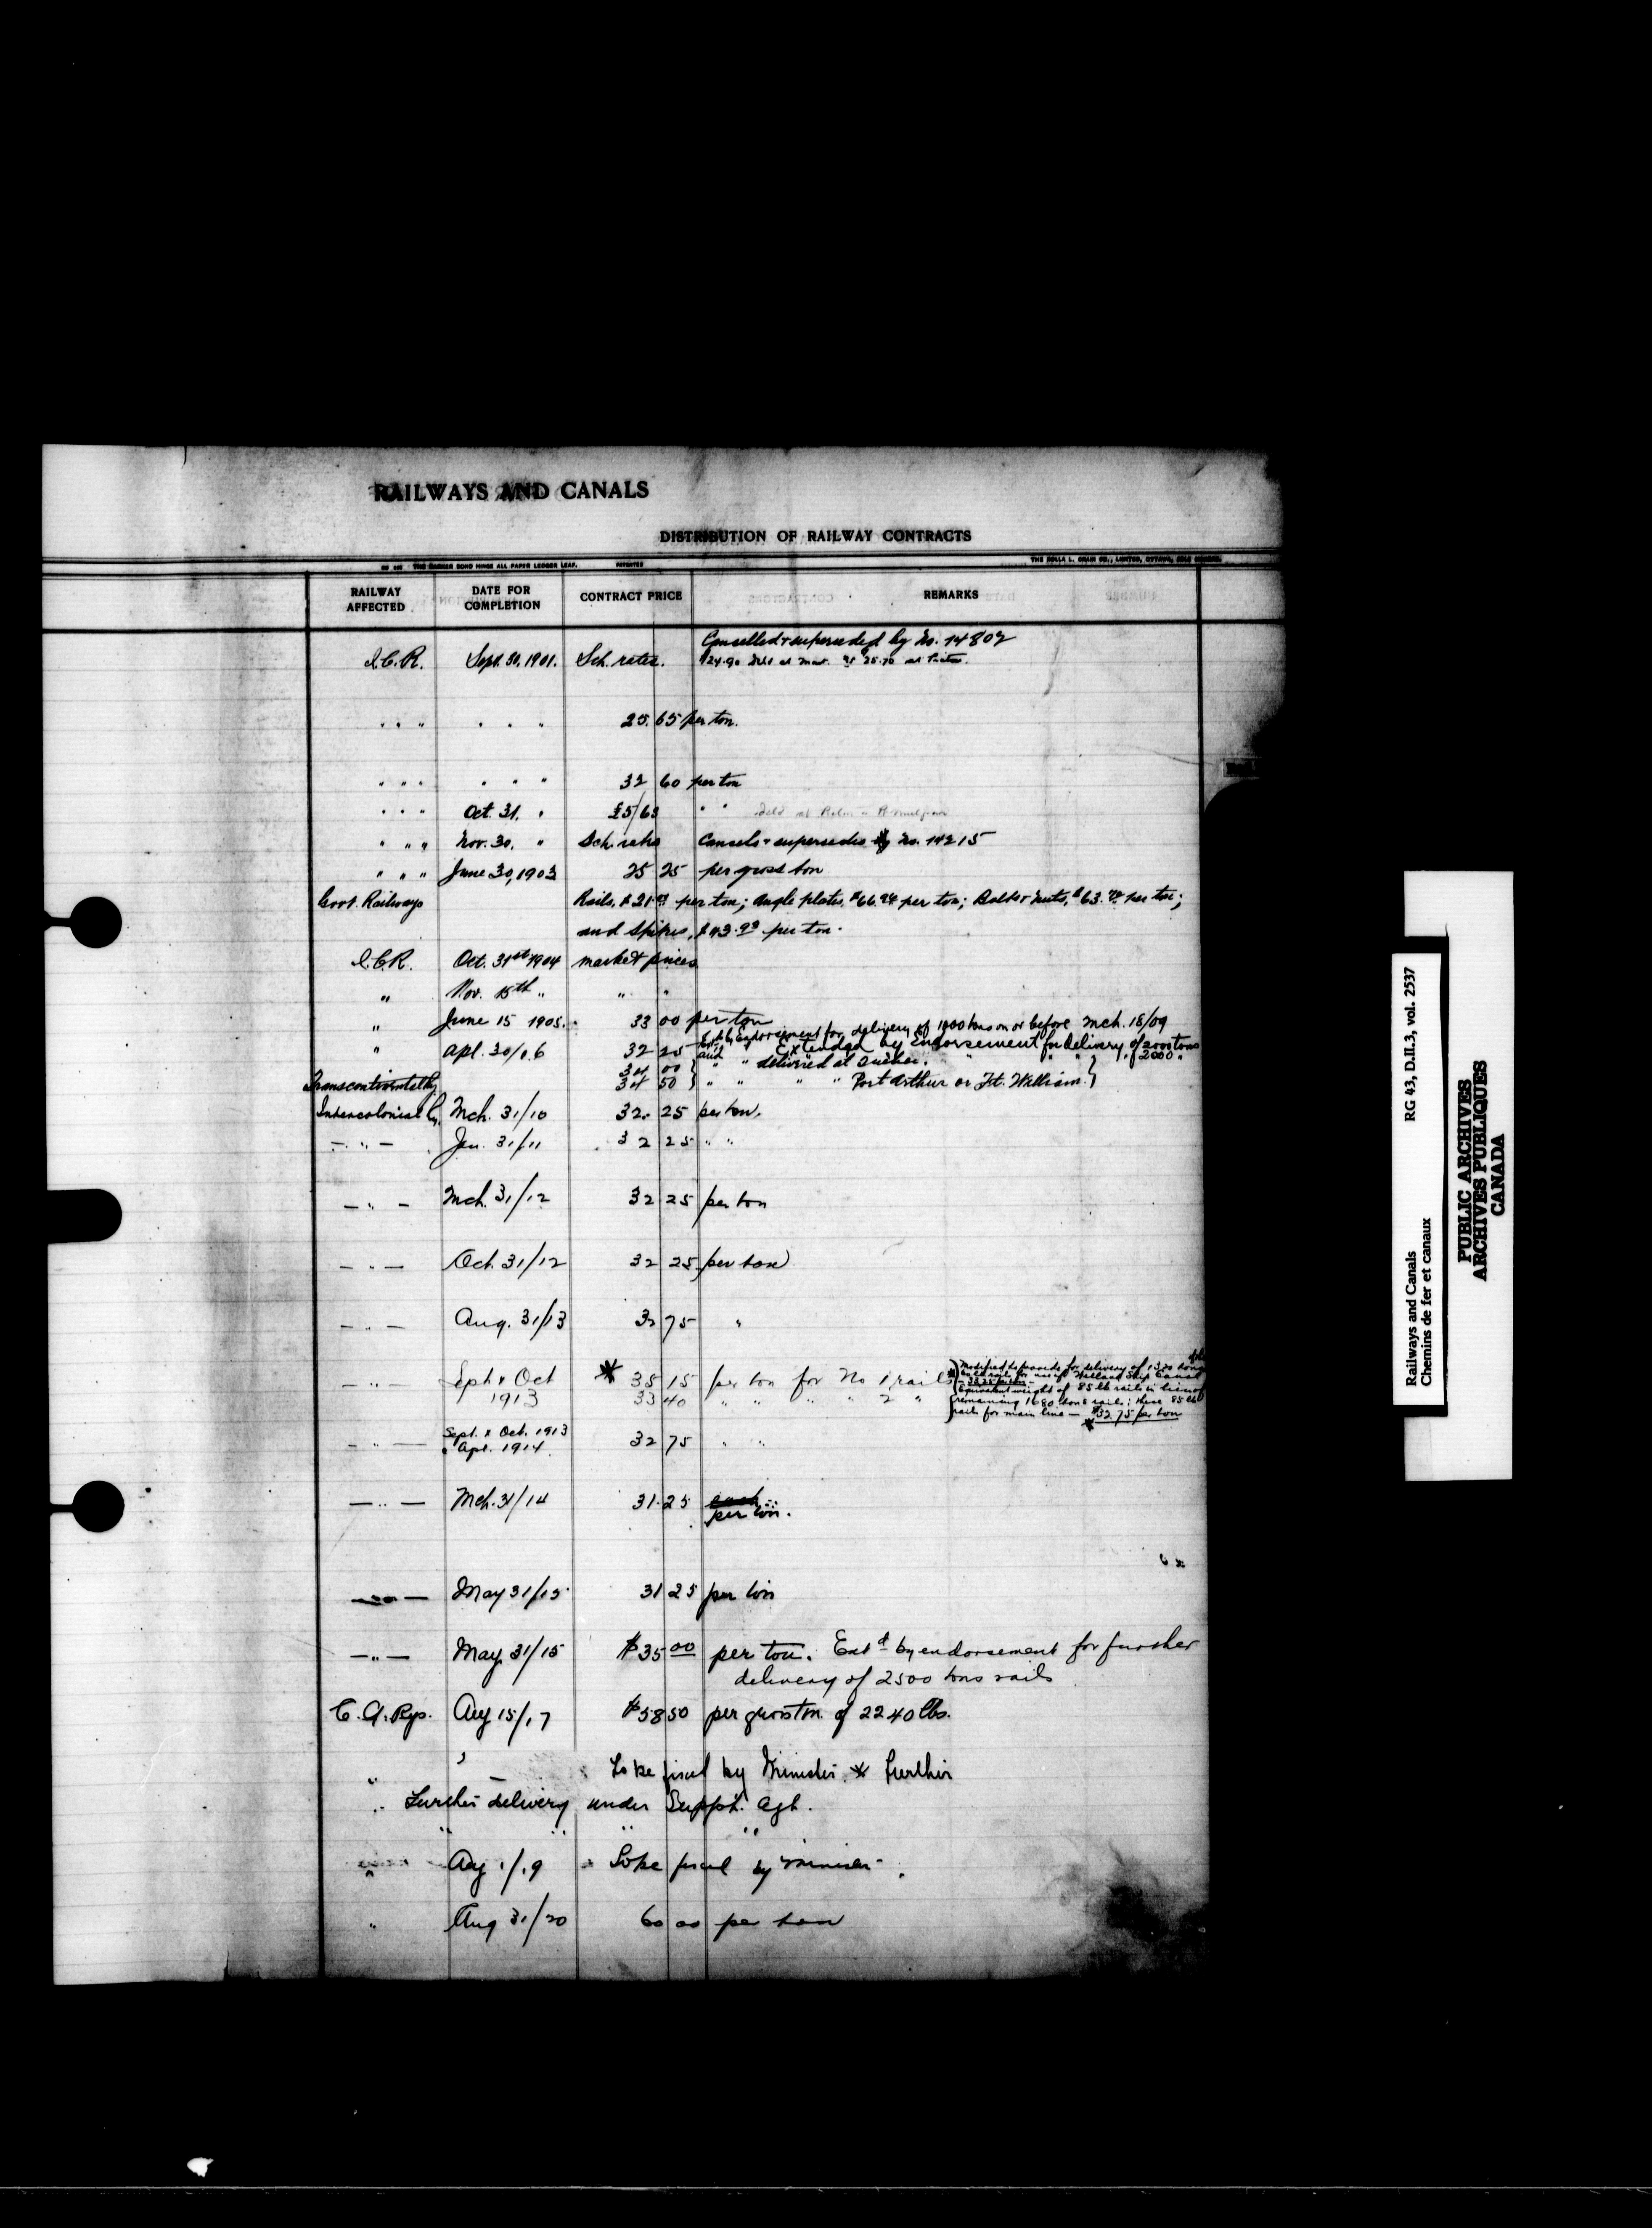 RAILWAYS AND CANALS
DISTRIBUTION OF RAILWAY CONTRACTS
THE BARKER BOND HINGE ALL PAPER LEDGER LEAF. PATENTED
THE ROLLA L. CRAIN CO., LIMITED, OTTAWA,
RAILWAY AFFECTED DATE FOR COMPLETION CONTRACT PRICE REMARKS
Cancelled & superseded by No. 14802
I.C.R. Sept. 30, 1901. Sch. rates. $24.90 at 25.70 at
" " " " " " 25.65 per ton.
" " " " " " 32 60 per ton
" " " Oct. 31. " £5/63 " "
" " " Nov. 30. " Sch. rates Cancels & supersedes No. 14215
" " " June 30, 1903 25 25 per gross ton
Govt. Railways Rails, $21. per ton; Angle plates, $66.94 per ton; Bolts & nuts, $63. per ton;
and Spikes, $43.93 per ton.
I.C.R. Oct. 31st 1904 market prices
" Nov. 15th " " "
" June 15 1905. 33 00 per ton
Ext. by Endorsement for delivery of 1000 tons on or before Mch. 18/09
" Apl. 30/06 32 25 Extended by Endorsement for delivery of 2000 tons
34 00 " " delivered at Quebec. " " " 2000 "
Transcontinental Ry 34 50 " " " " Port Arthur or Ft. William.
Intercolonial Ry. Mch. 31/10 32. 25 per ton.
— " — Jan. 31/11 32 25 " "
— " — Mch. 31/12 32 25 per ton
— " — Oct. 31/12 32 25 per ton
— " — Aug. 31/13 32 75 "
Modified to provide for delivery of 1320 tons
— " — Sept & Oct * 35 15 per ton for No 1 rails
for use of Welland Ship Canal
1913 33 40 " " " " 2 "
Equivalent weight of 85 lb rails in lieu of
remaining 1680 tons rails; these 85 lb
rails for main line — $32.75 per ton
— " — Sept. & Oct. 1913
& Apl. 1914. 32 75 " "
— " — Mch. 31/14 31.25 each
per ton.
— " — May 31/15 31 25 per ton
— " — May 31/15 $35 00 per ton. Extd by endorsement for further
delivery of 2500 tons rails
C. G. Rys. Aug 15/17 $58 50 per gross ton of 2240 lbs.
" — To be fixed by Minister * Further
" Further delivery under Suppl. Agt.
" " " "
" Aug 1/19 To be fixed by Minister
" Aug 31/20 60 00 per ton
Railways and Canals RG 43, D.II.3, vol. 2537
Chemins de fer et canaux
PUBLIC ARCHIVES
ARCHIVES PUBLIQUES
CANADA